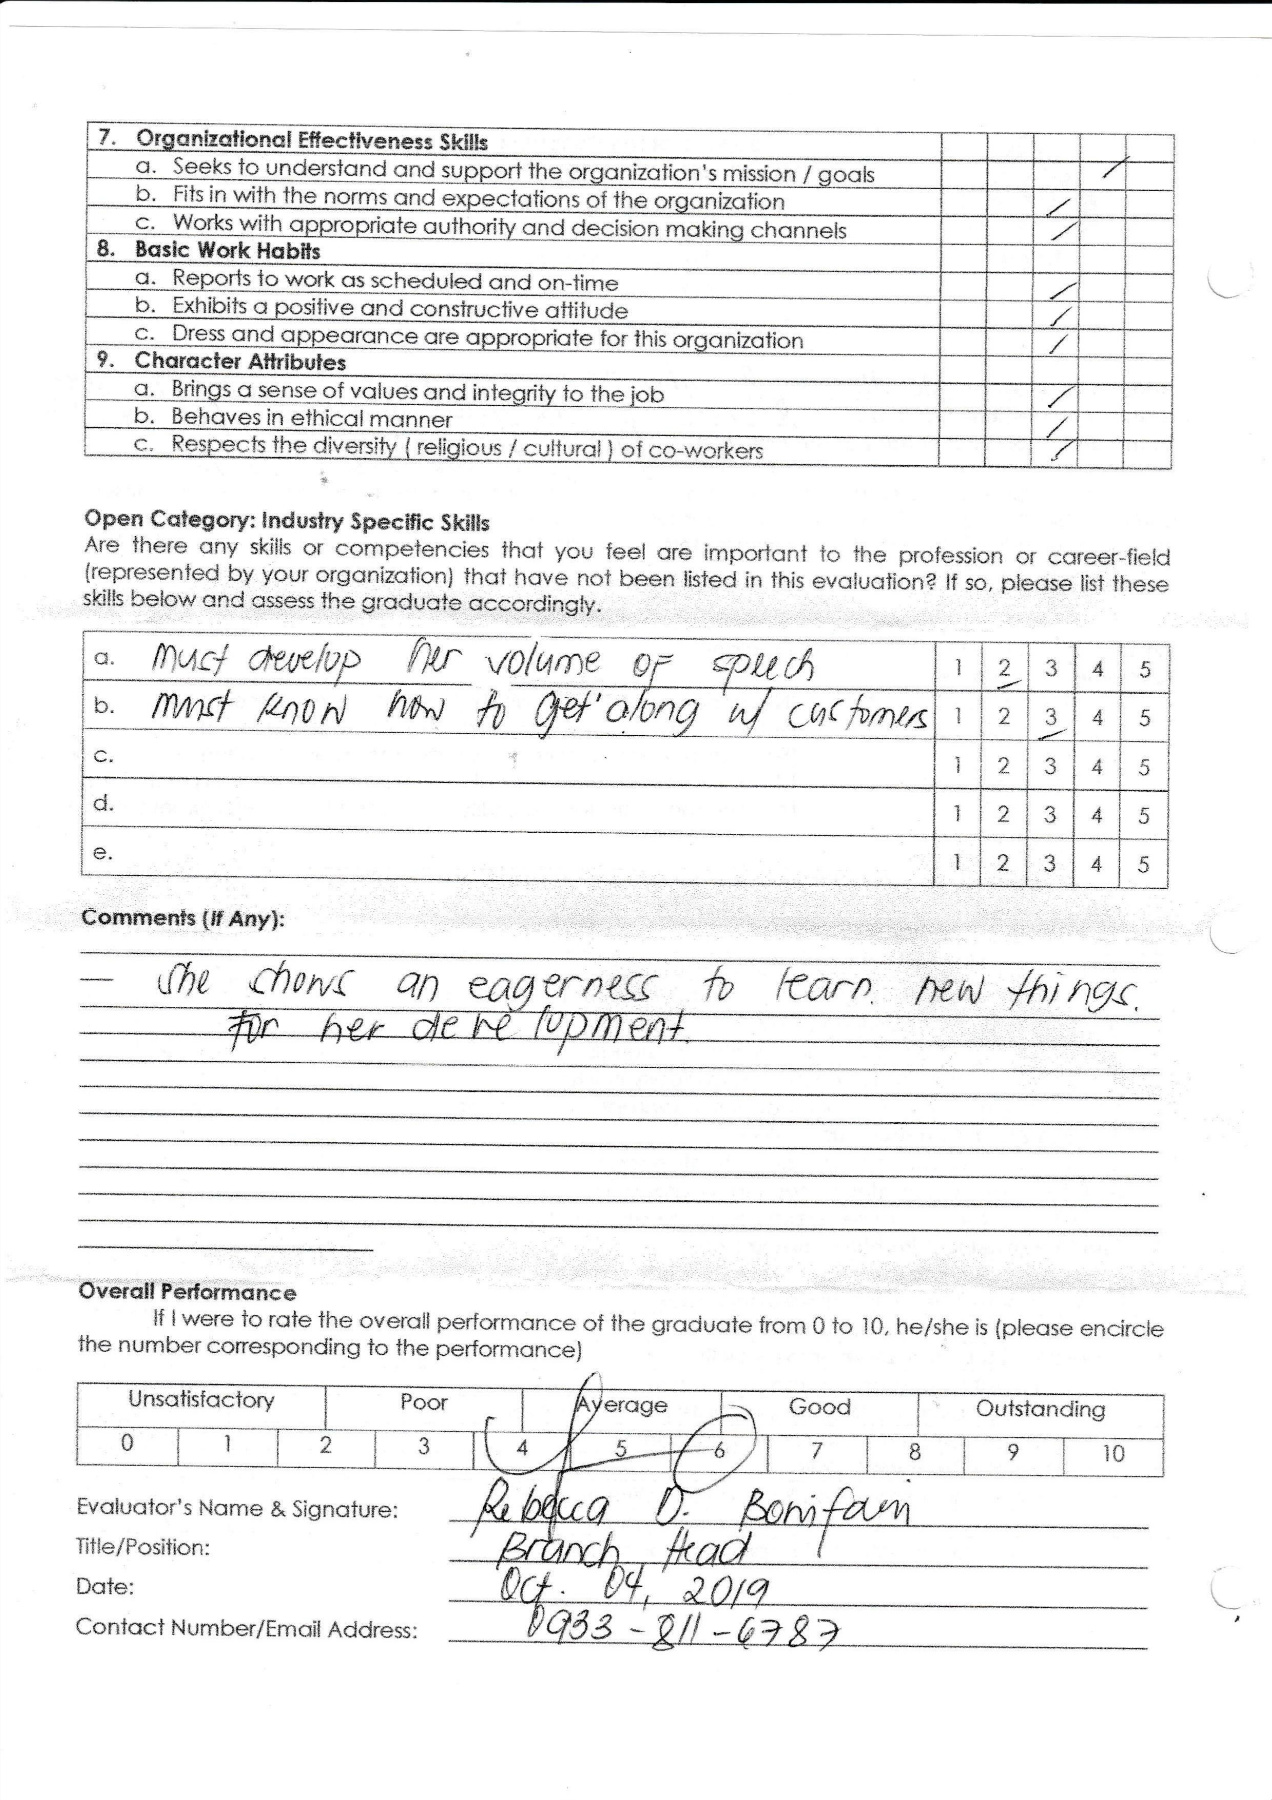 7. Organizational Effectiveness Skills
a. Seeks to understand and support the organization's mission / goals /
b. Fits in with the norms and expectations of the organization /
c. Works with appropriate authority and decision making channels /
8. Basic Work Habits
a. Reports to work as scheduled and on-time /
b. Exhibits a positive and constructive attitude /
c. Dress and appearance are appropriate for this organization /
9. Character Attributes
a. Brings a sense of values and integrity to the job /
b. Behaves in ethical manner /
c. Respects the diversity ( religious / cultural ) of co-workers /
Open Category: Industry Specific Skills
Are there any skills or competencies that you feel are important to the profession or career-field
(represented by your organization) that have not been listed in this evaluation? If so, please list these
skills below and assess the graduate accordingly.
a. must develop her volume of speech 1 2 3 4 5
b. must know how to get along w/ customers 1 2 3 4 5
c. 1 2 3 4 5
d. 1 2 3 4 5
e. 1 2 3 4 5
Comments (If Any):
— she shows an eagerness to learn new things.
for her development.
Overall Performance
If I were to rate the overall performance of the graduate from 0 to 10, he/she is (please encircle
the number corresponding to the performance)
Unsatisfactory Poor Average Good Outstanding
0 1 2 3 4 5 6 7 8 9 10
Evaluator's Name & Signature: Rebecca D.
Title/Position: Branch Head
Date: Oct. 04, 2019
Contact Number/Email Address: 0933-811-6787